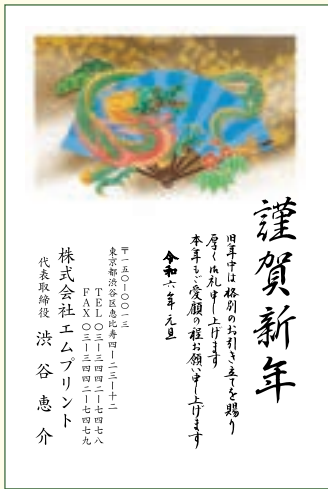 謹賀新年
旧年中は格別のお引き立てを賜り
厚く御礼申し上げます
本年もご愛顧の程お願い申し上げます
令和六年元旦
〒一五〇-〇〇一三
東京都渋谷区恵比寿四-二三-十二
TEL〇三-三四四二-七四七八
FAX〇三-三四四二-七四七九
株式会社エムプリント
代表取締役 渋谷恵介